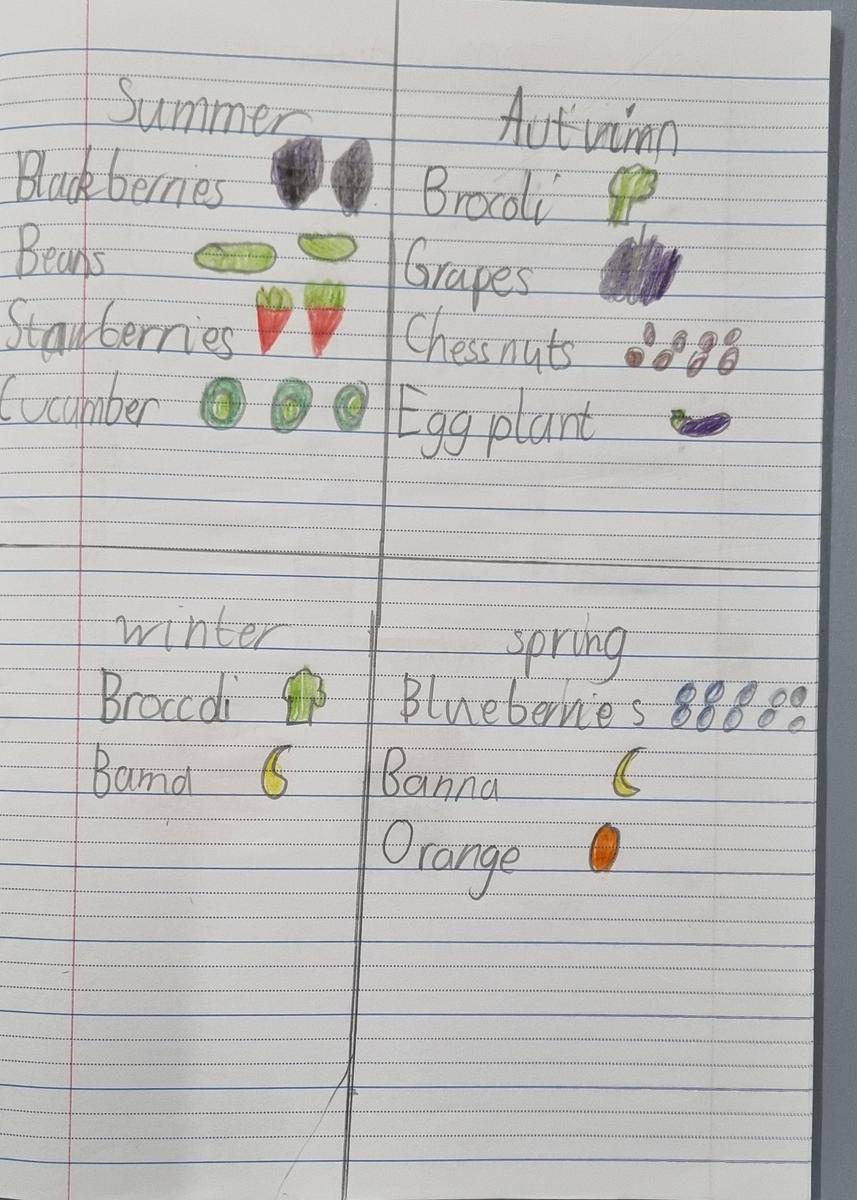 Summer
Blackberries
Beans
Stawberries
Cucumber
Autnimn
Brocoli
Grapes
Chessnuts
Egg plant
winter
Broccoli
Bama
spring
Blueberries
Banna
Orange